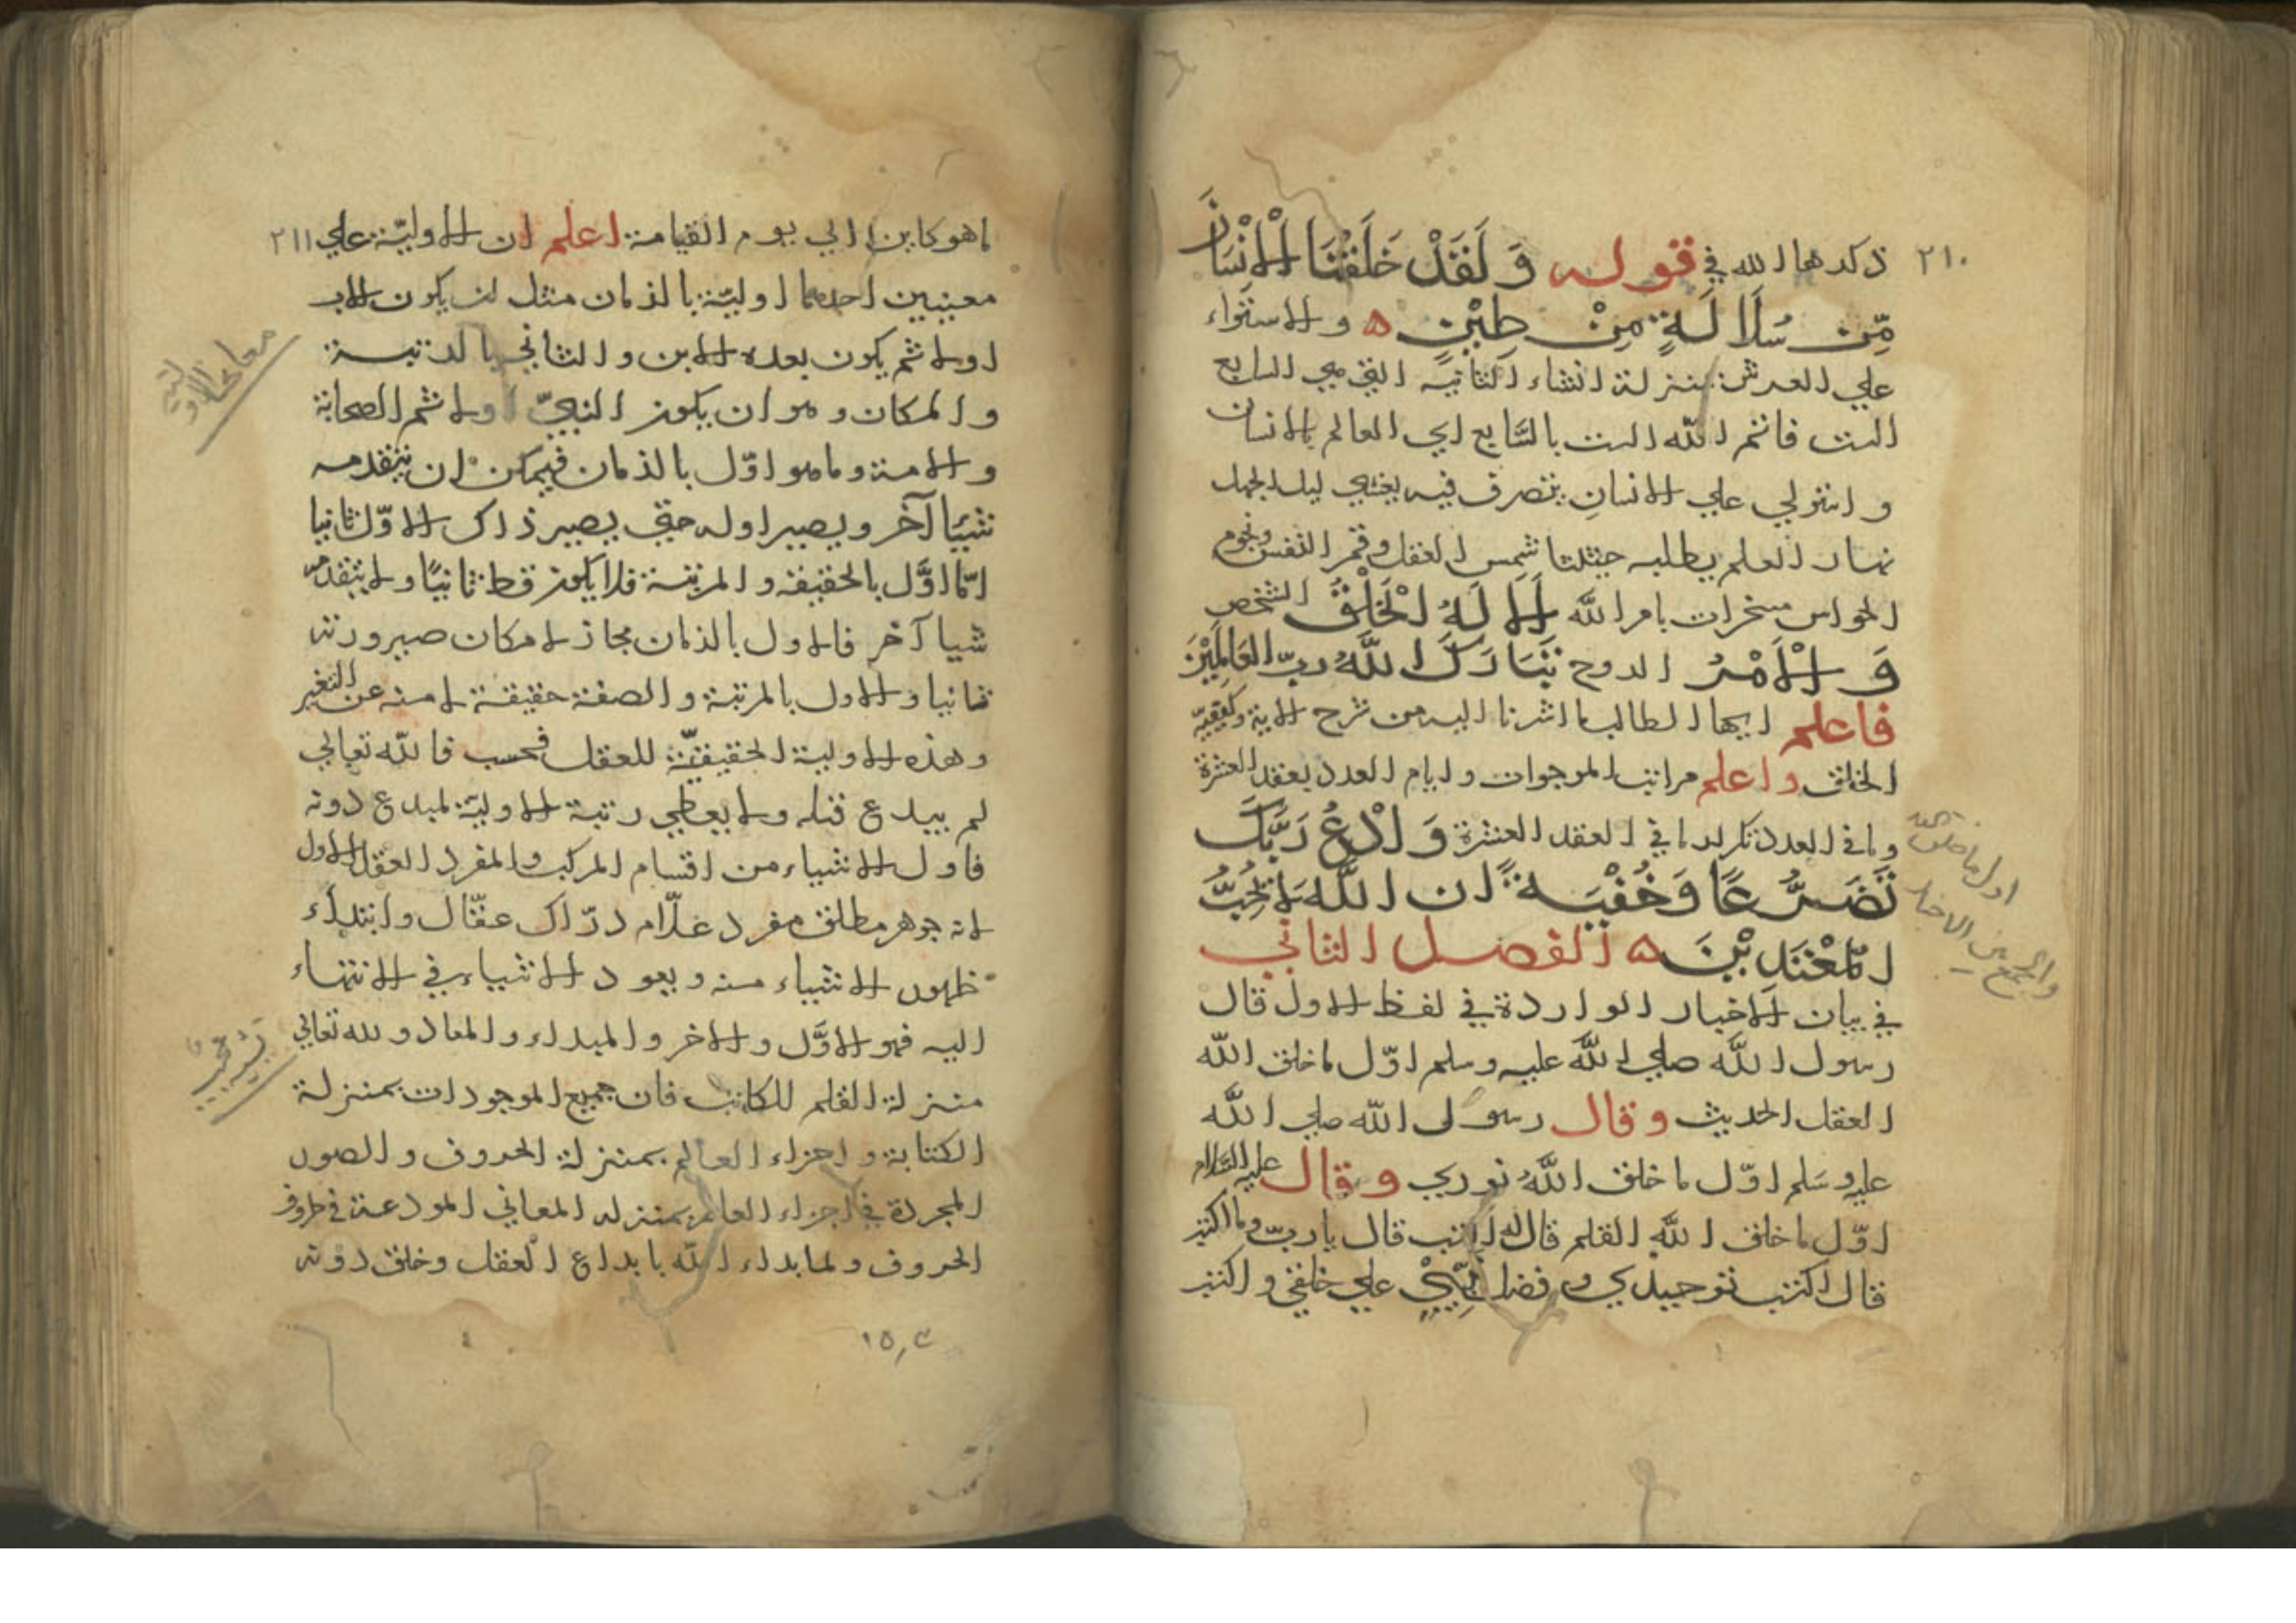 ٢١٠
ذكرها الله في قوله وَلَقَدْ خَلَقْنَا الْاِنْسَانَ
مِّن سُلَالَةٍ مِنْ طِيْنٍ ه والاستواء
علي العرش بمنزلة انشاء الثانية التي هي السابع
الست فاتم الله الست بالسَّابع اي العالم بالانسان
واستولي علي الانسانِ يتصرف فيه يغشي ليل الجهل
نهار العلم يطلبه حثيثا شمس العقل وقمر النفس ونجوم
الحواس مسخرات بامر الله اَلَا لَهُ الْخَلْقُ الشخص
وَ الْاَمْرُ الروح تَبَارَكَ اللهُ ربّ العَالمِيْنَ
فاعلم ايها الطالب ما اشرنا اليه من شرح الاية وكيفيّة
الخلق واعلم مراتب الموجوات وايام العدد بعقد العشرة
وما في العدد تكرار ما في العقد العشرة وَادْعُ رَبَّكَ
تَضَرُّعًا وَخُفْيَةً ان اللهَ لَا يُحِبُّ
المُعْتَدِيْنَ ه الفصل الثاني
في بيان الاخبار الواردة في لفظ الاول قال
رسول الله صلي الله عليه وسلم اوّل ما خلق الله
العقل الحديث وقال رسول الله صلي الله
عليه وسَلم اوّل ما خلق اللهُ نوري وقال عليه السَّلام
اوّل ما خلق الله القلم قال له اكتب قال يا ربّ وما اكتب
قال اكتب توحيدي وفضل نبيّي علي خلقي واكتب
اول ما خلق الله
والجمع بين الاخبار
٢١١
ما هو كاين الي يوم القيامة اعلم ان الاوليّة علي
معنيين احدهما اوليّة بالزمان مثل ان يكون الاب
اولا ثم يكون بعده الابن والثاني بالرتبة
والمكان وهو ان يكون النبيّ اولا ثم الصحابة
والامة وما هو اوّل بالزمان فيمكن ان يتقدمه
شيئا آخر ويصير اوله حتي يصير ذاك الاوّل ثانيا
امّا اوَّل بالحقيقة والمرتبة فلا يكون قط ثانيًا ولا يتقدمه
شيا آخر فالاول بالزمان مجاز لامكان صيرورته
ثانيا والاول بالمرتبة والصفة حقيقة لامنه عن التغير
وهذه الاولية الحقيقيّة للعقل فحسب فالله تعالي
لم يبدع قبله ولا يعطي رتبة الاوليّة لمبدع دونه
فاول الاشياء من اقسام المركب والمفرد العقل الاول
لانه جوهر مطلق مفرد علّام درّاك عقّال وابتداء
ظهور الاشياء منه ويعود الاشياء في الانتهاء
اليه فهو الاوَّل والاخر والمبداء والمعاد ولله تعالي
منزلة القلم للكاتب فان جميع الموجودات بمنزلة
الكتابة واجزاء العالم بمنزلة الحروف والصور
المجردة في اجزاء العالم بمنزله المعاني المودعة في ظروف
الحروف ولما بداء الله بابداع العقل وخلق دونه
معاني الاولية
تشبيه عجيب